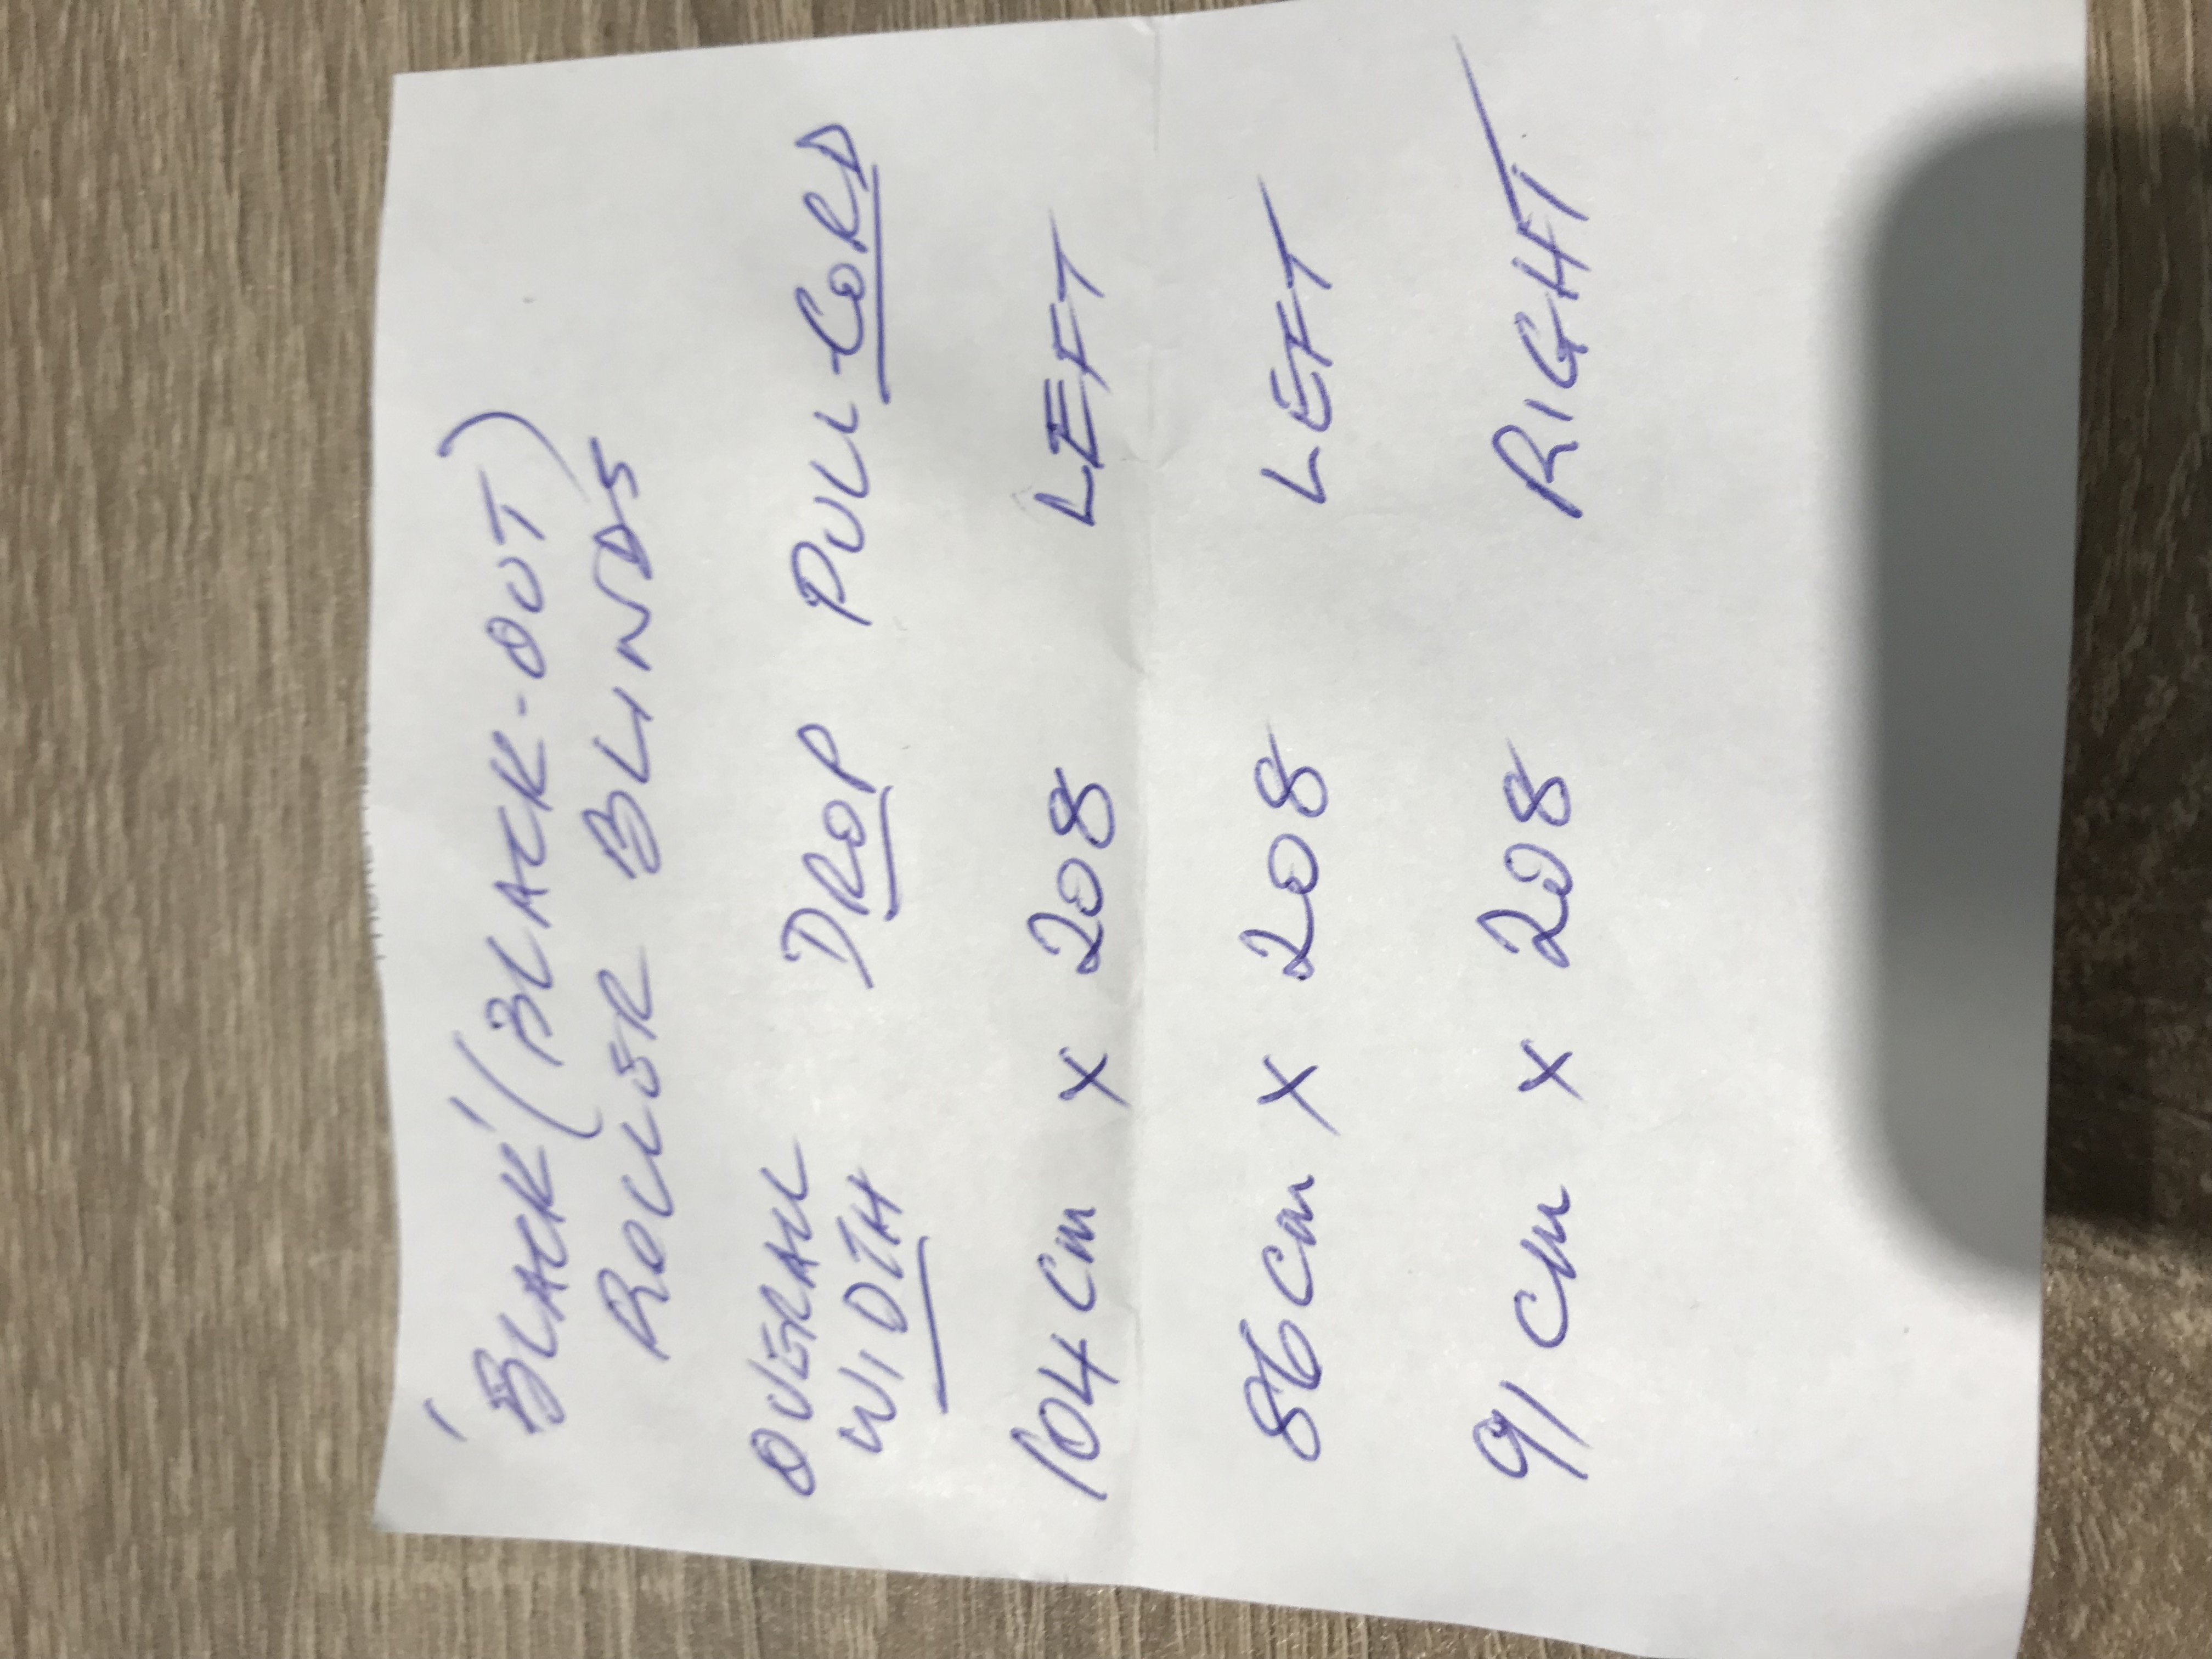 'BLACK' (BLACK-OUT)
ROLLER BLINDS
OVERALL
WIDTH DROP PULL CORD
104 cm x 208 LEFT
86 cm x 208 LEFT
91 cm x 208 RIGHT